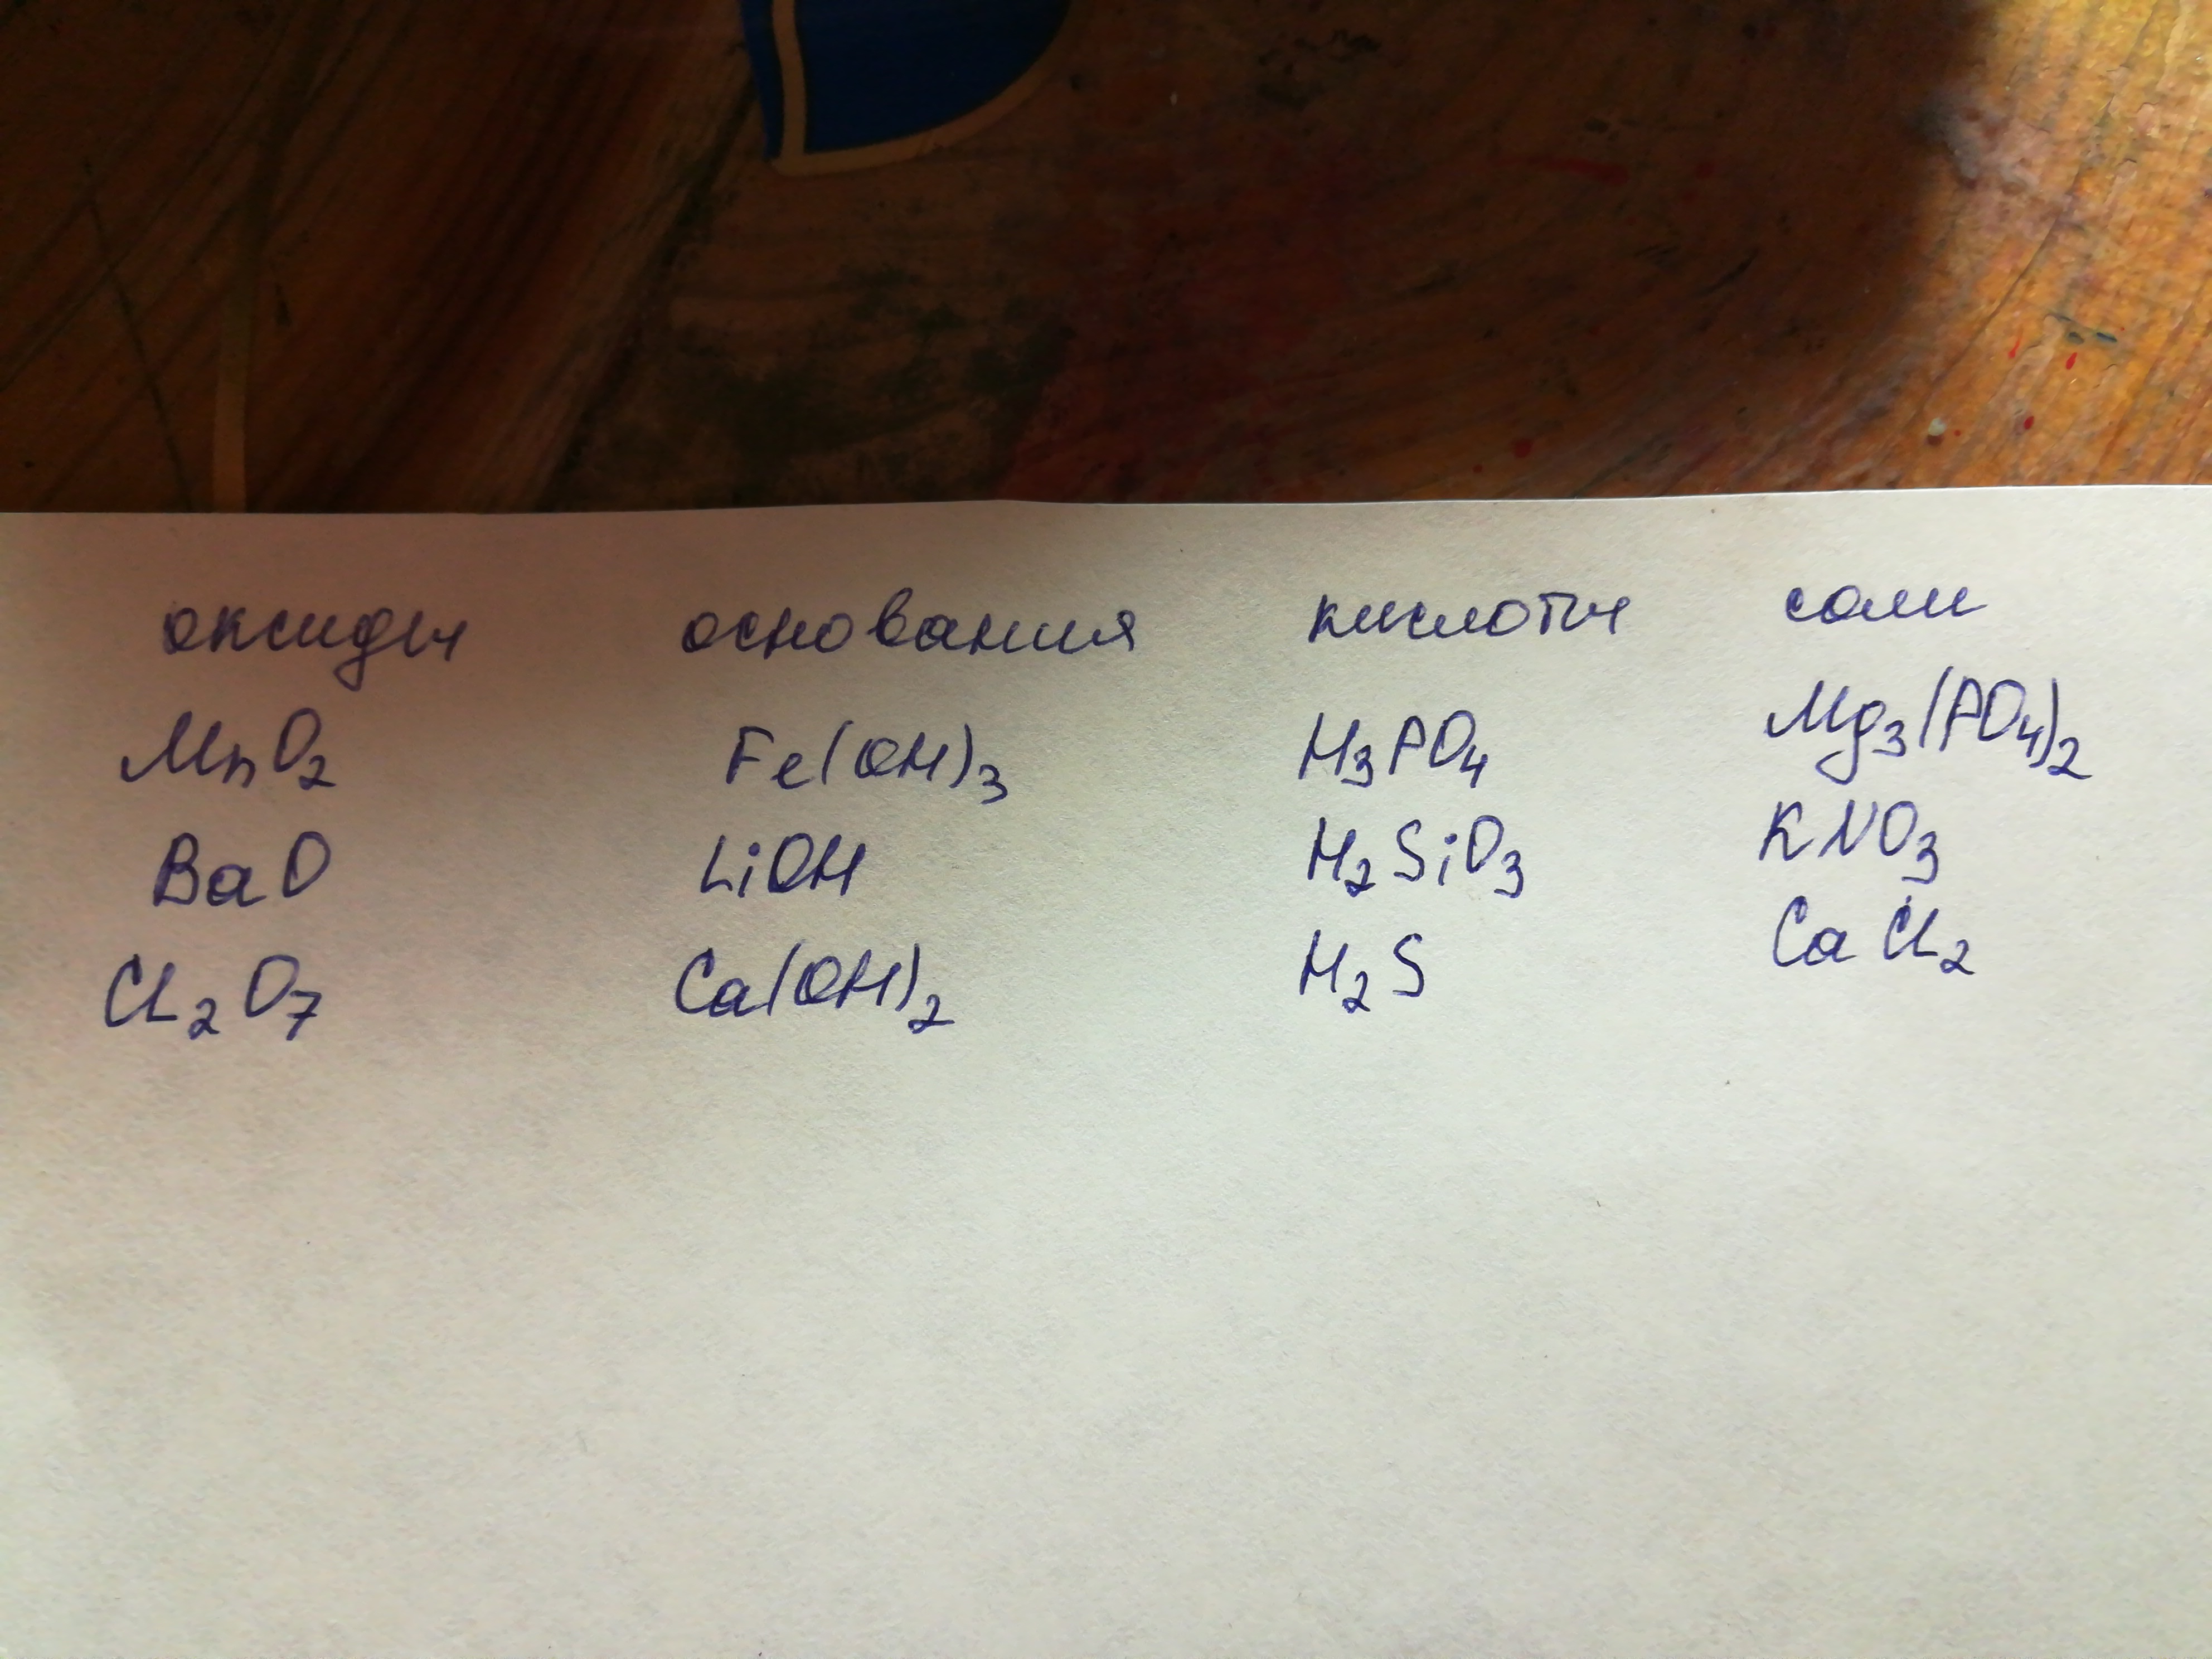 оксиды основания кислоты соли
MnO₂ Fe(OH)₃ H₃PO₄ Mg₃(PO₄)₂
BaO LiOH H₂SiO₃ KNO₃
Cl₂O₇ Ca(OH)₂ H₂S CaCl₂